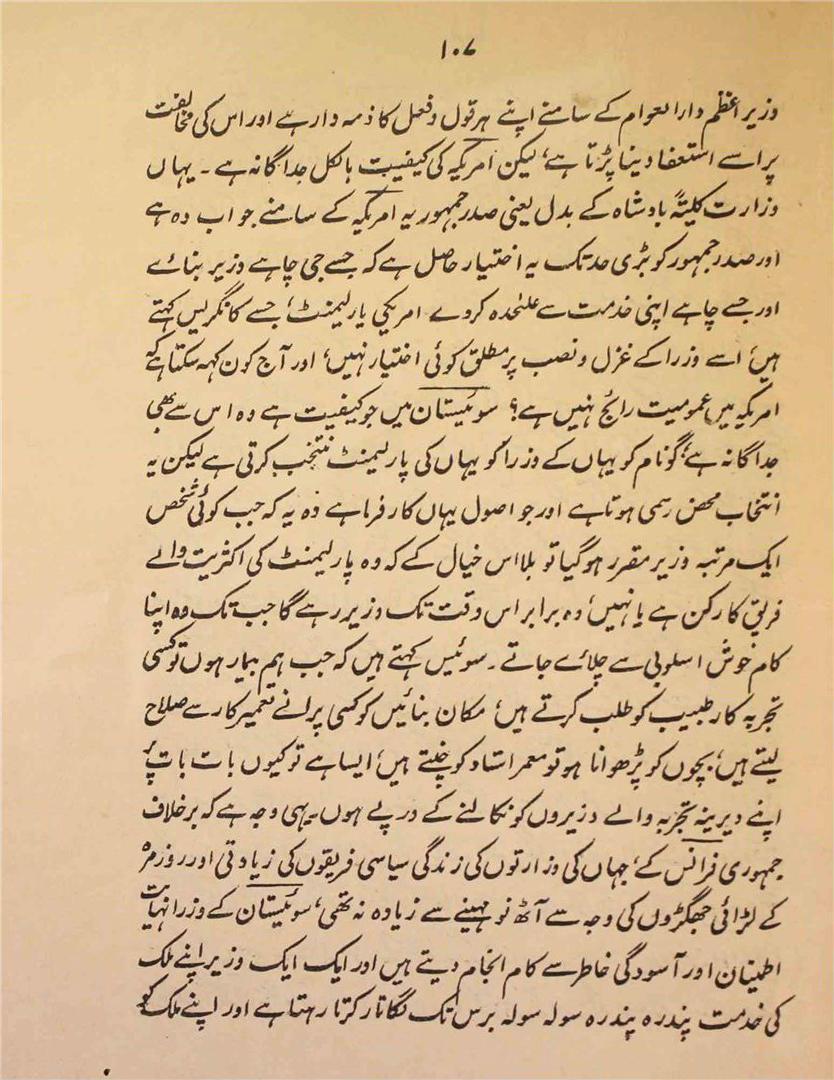 ۱۰۷
وزیر اعظم دارالعوام کے سامنے اپنے ہر قول و فعل کا ذمہ دار ہے اور اس کی مخالفت
پر اسے استعفا دینا پڑتا ہے، لیکن امریکہ کی کیفیت بالکل جداگانہ ہے ۔ یہاں
وزارت کلیتہً بادشاہ کے بدل یعنی صدر جمہوریہ امریکہ کے سامنے جواب دہ ہے
اور صدر جمہور کو بڑی حد تک یہ اختیار حاصل ہے کہ جسے جی چاہے وزیر بنائے
اور جسے چاہے اپنی خدمت سے علٰحدہ کردے ۔ امریکی پارلیمنٹ، جسے کانگریس کہتے
ہیں، اسے وزرا کے عزل و نصب پر مطلق کوئی اختیار نہیں، اور آج کون کہہ سکتا ہے کہ
امریکہ میں عمومیت رائج نہیں ہے؟ سوئیستان میں جو کیفیت ہے وہ اس سے بھی
جداگانہ ہے، گو نام کو یہاں کے وزرا کو یہاں کی پارلیمنٹ منتخب کرتی ہے لیکن یہ
انتخاب محض رسمی ہوتا ہے اور جو اصول یہاں کارفرما ہے وہ یہ کہ جب کوئی شخص
ایک مرتبہ وزیر مقرر ہوگیا تو بلا اس خیال کے کہ وہ پارلیمنٹ کی اکثریت والے
فریق کا رکن ہے یا نہیں، وہ برابر اس وقت تک وزیر رہے گا جب تک وہ اپنا
کام خوش اسلوبی سے چلائے جائے ۔ سوئیس کہتے ہیں کہ جب ہم بیمار ہوں تو کسی
تجربہ کار طبیب کو طلب کرتے ہیں، مکان بنائیں تو کسی پرانے تعمیر کار سے صلاح
لیتے ہیں، بچوں کو پڑھوانا ہو تو معمر استاد کو چنتے ہیں، ایسا ہے تو کیوں بات بات پر
اپنے دیرینہ تجربہ والے وزیروں کو نکالنے کے درپے ہوں ۔ یہی وجہ ہے کہ برخلاف
جمہوری فرانس کے، جہاں کی وزارتوں کی زندگی سیاسی فریقوں کی زیادتی اور روزمرہ
کے لڑائی جھگڑوں کی وجہ سے آٹھ نو مہینے سے زیادہ نہ تھی، سوئیستان کے وزرا نہایت
اطمینان اور آسودگی خاطر سے کام انجام دیتے ہیں اور ایک ایک وزیر اپنے ملک
کی خدمت پندرہ پندرہ سولہ سولہ برس تک لگاتار کرتا رہتا ہے اور اپنے ملک کو